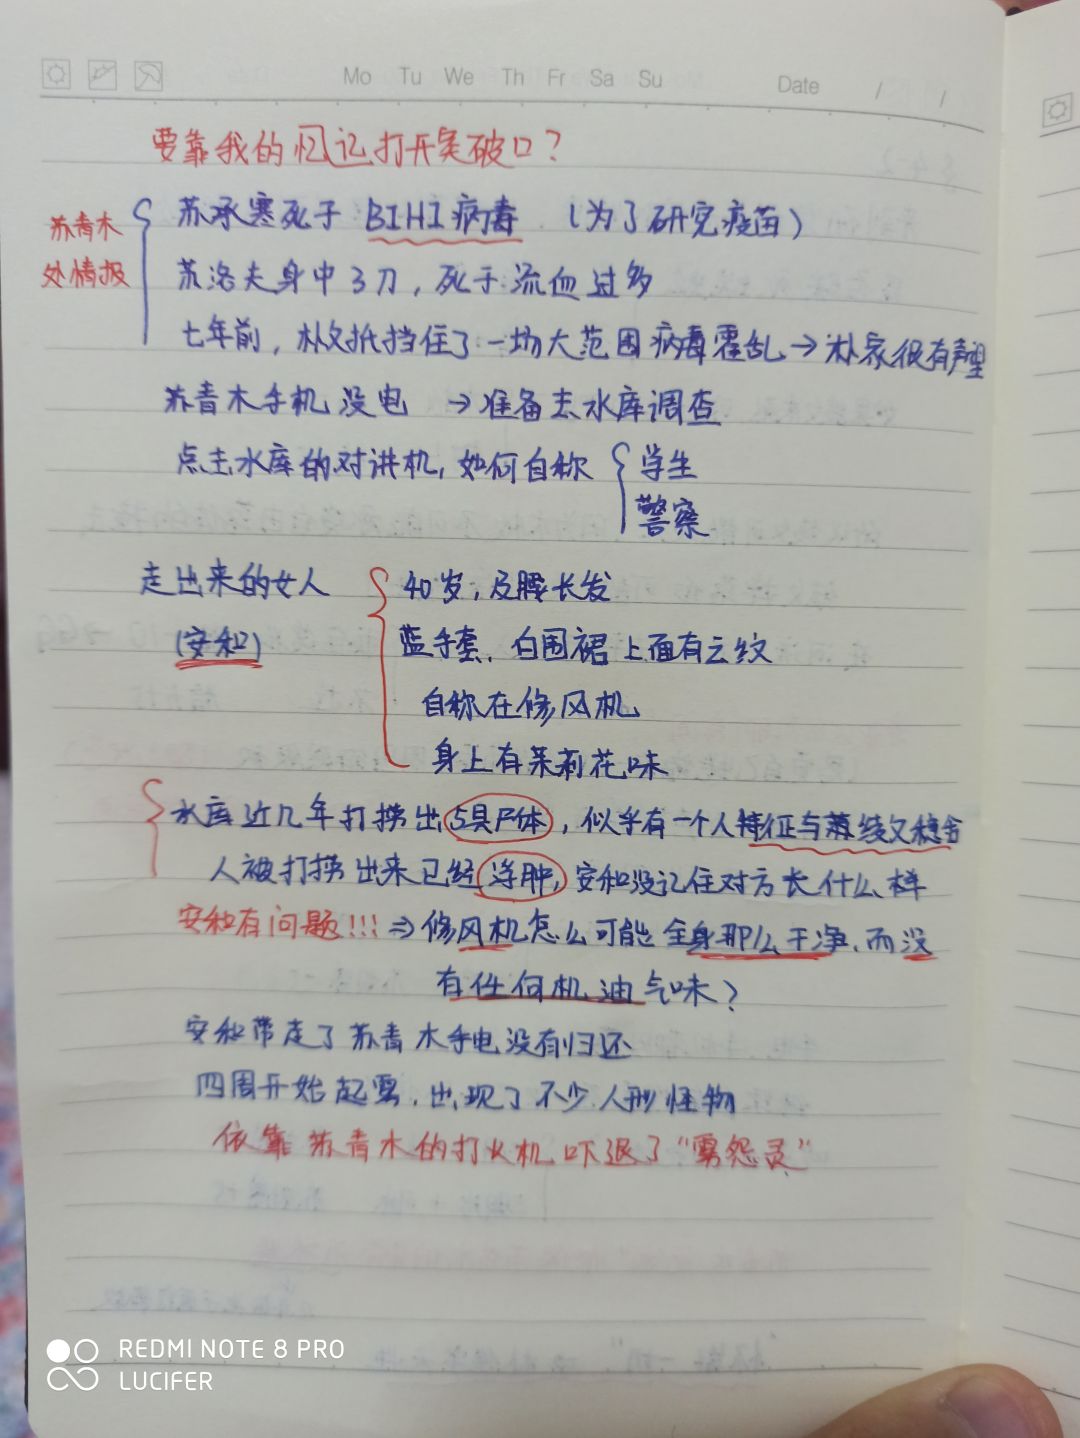 Mo Tu We Th Fr Sa Su Date / /
要靠我的回记打开突破口?
苏青木
处情报
苏承寒死于 BIHI病毒 (为了研究疫苗)
苏洛夫身中3刀,死于流血过多
七年前,朴父抵挡住了一场大范围病毒霍乱→朴家很有声望
苏青木手机没电 →准备去水库调查
点击水库的对讲机,如何自称 学生
警察
走出来的女人
(安和)
40岁,及腰长发
蓝手套、白围裙上面有云纹
自称在修风机
身上有茉莉花味
水库近几年打捞出5具尸体,似乎有一个人特征与萧绫父
人被打捞出来已经浮肿,安和没记住对方长什么样
安和有问题!!!⇒修风机怎么可能全身那么干净,而没
有任何机油气味?
安和带走了苏青木手电没有归还
四周开始起雾,出现了不少人形怪物
依靠苏青木的打火机吓退了“雾怨灵”
REDMI NOTE 8 PRO
LUCIFER